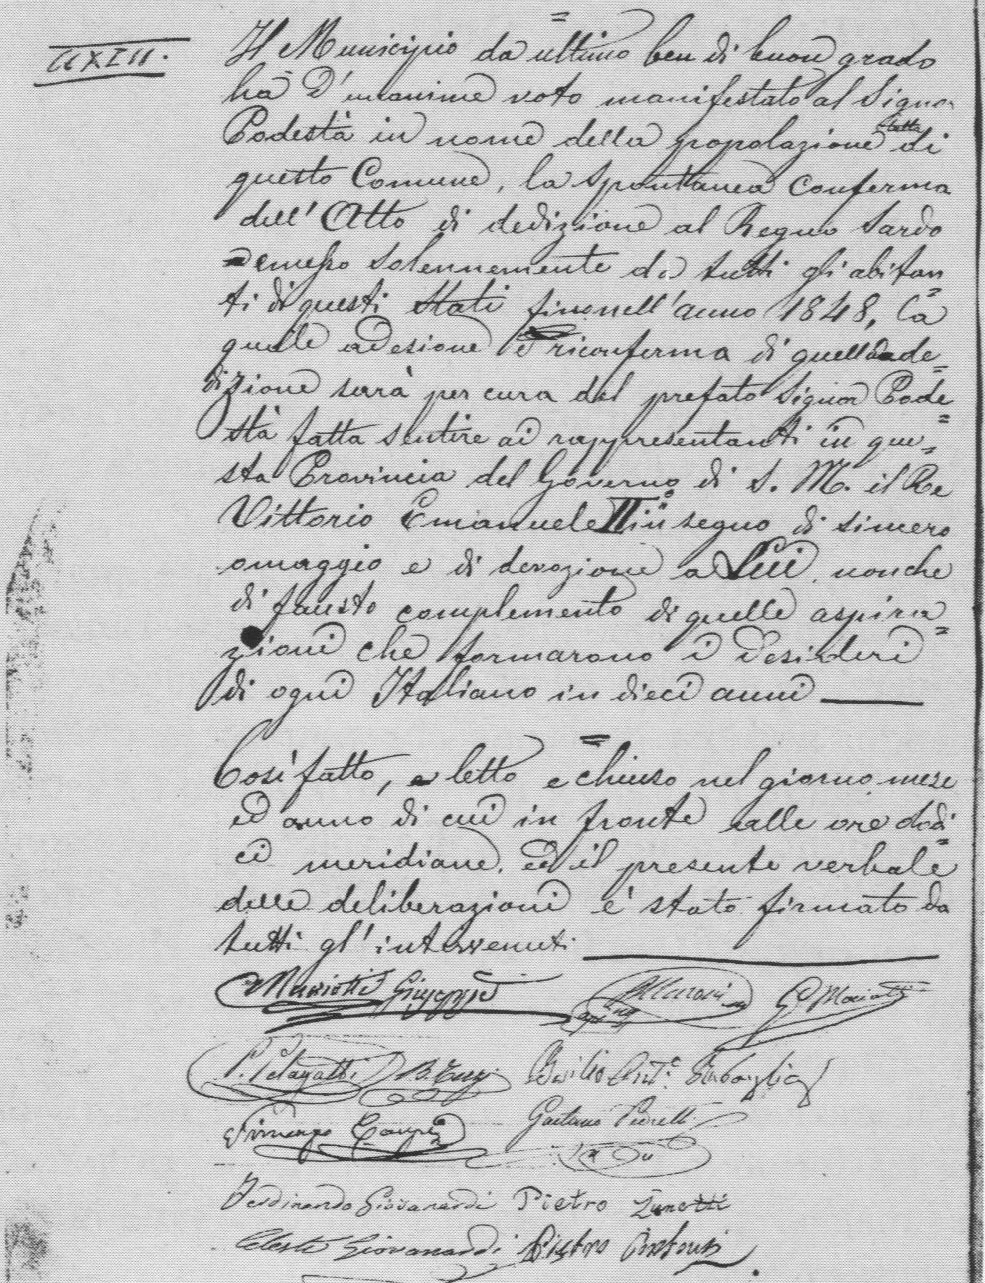 Il Municipio da ultimo ben di buon grado
ha d'unanime voto manifestato al Signor
Podestà in nome della popolazione tutta di
questo Comune, la spontanea conferma
dell'Atto di dedizione al Regno Sardo
emesso solennemente da tutti gli abitan=
ti di questi Stati fino nell'anno 1848, la
quale adesione e riconferma di quella de=
dizione sarà per cura del prefato Signor Pode=
stà fatta sentire ai rappresentanti in que=
sta Provincia del Governo di S. M. il Re
Vittorio Emanuele II in segno di sincero
omaggio e di devozione a Lui, nonche
di fausto complemento di quelle aspira=
zioni che formarono i desideri
di ogni Italiano in dieci anni
=
Così fatto, e letto e chiuso nel giorno mese
ed anno di cui in fronte alle ore dodi=
ci meridiane, ed il presente verbale
delle deliberazioni è stato firmato da
tutti gl'intervenuti
Mariotti Giuseppe
G Mariotti
Basilio Ant.e Sbabaglia
Gaetano Pedrelli
Ferdinando Giovanardi Pietro Zanotti
Celeste Giovanardi Pietro